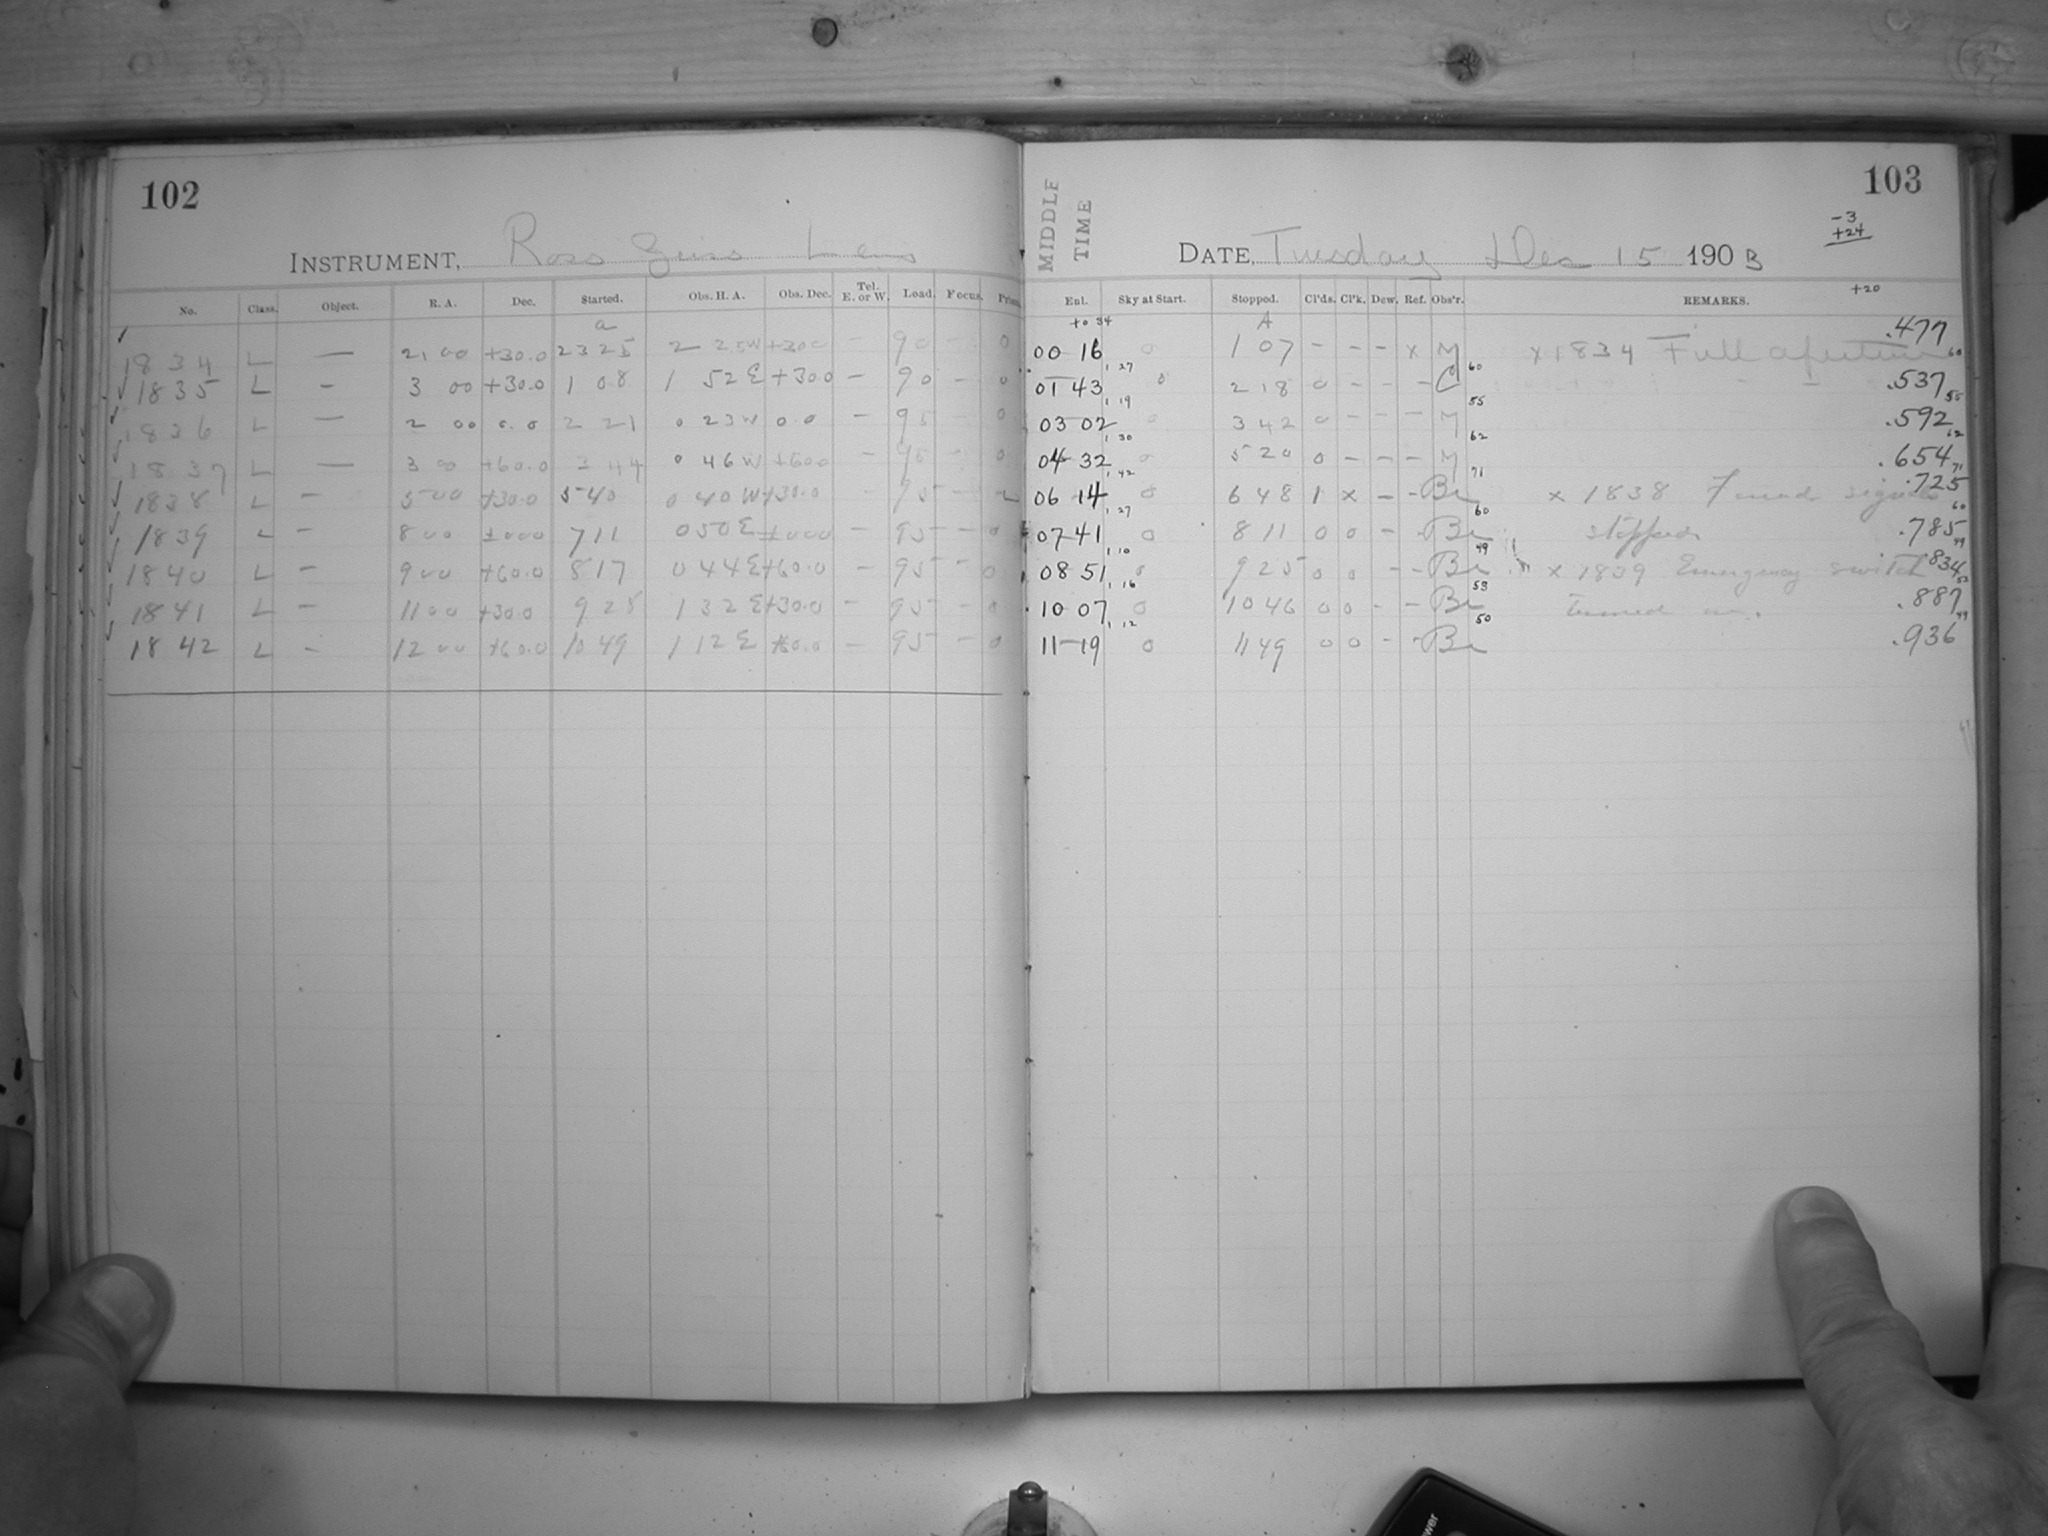 102
INSTRUMENT, Ross Zeiss Lens
No. Class. Object. R. A. Dec. Started. Obs. H. A. Obs. Dec. Tel. E. or W. Load. Focus. Prism.
a
1834 L — 21 00 +30.0 23 25 2 25 W +30.0 — 90 — 0
1835 L — 3 00 +30.0 1 08 1 52 E +30.0 — 90 — 0
1836 L — 2 00 0.0 2 21 0 23 W 0.0 — 95 — 0
1837 L — 3 00 +60.0 3 44 0 46 W +60.0 — 95 — 0
1838 L — 5 00 +30.0 5 40 0 40 W +30.0 — 95 —
1839 L — 8 00 ±000 7 11 0 50 E ±000 — 95 — 0
1840 L — 9 00 +60.0 8 17 0 44 E +60.0 — 95 — 0
1841 L — 11 00 +30.0 9 25 1 32 E +30.0 — 95 — 0
1842 L — 12 00 +60.0 10 49 1 12 E +60.0 — 95 — 0
103
MIDDLE
TIME
-3
+24
DATE, Tuesday Dec 15 190
+20
Enl. Sky at Start. Stopped. Cl'ds. Cl'k. Dew. Ref. Obs'r. REMARKS.
+0 34 A
00 16 0 1 07 — — — x M x 1834 Full .477
1 27 60 60
01 43 0 2 18 0 — — — C .537
1 19 55 55
03 02 0 3 42 0 — — — M .592
1 30 62 62
04 32 0 5 20 0 — — — M .654
1 42 71 71
06 14 0 6 48 1 x — — Be x 1838 Found .725
1 27 60 60
07 41 0 8 11 0 0 — — Be stopped .785
1 10 49 49
08 51 0 9 25 0 0 — — Be x 1839 Emergency switch .834
1 16 53 53
10 07 0 10 46 0 0 — — Be turned on. .887
1 12 50 49
11 19 0 11 49 0 0 — — Be .936